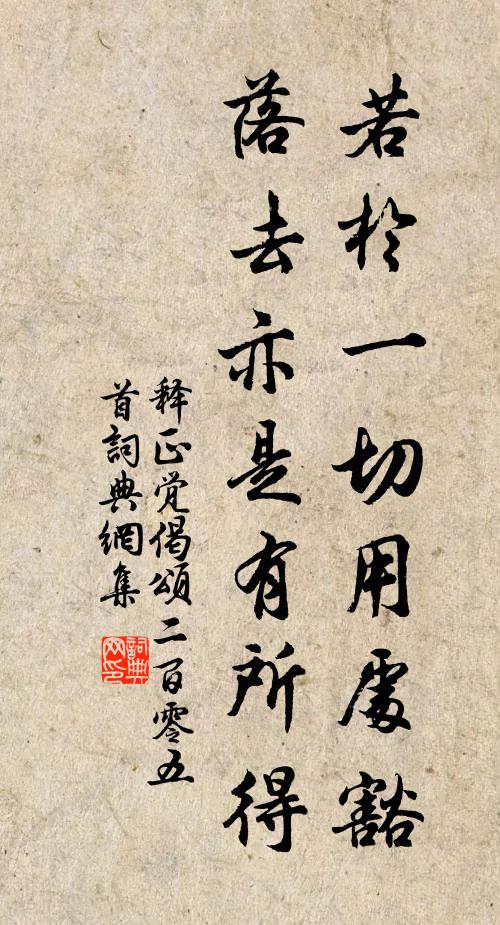 若於一切用處豁
落去亦是有所得
释正觉偈頌二百零五
首詞典網集
詞典网印